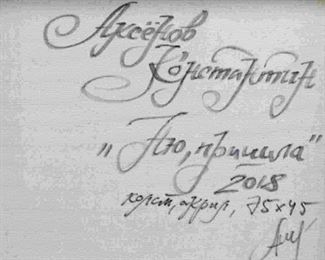 Аксёнов
Константин
„Ню, пришла"
2018
холст, акрил, 75х45